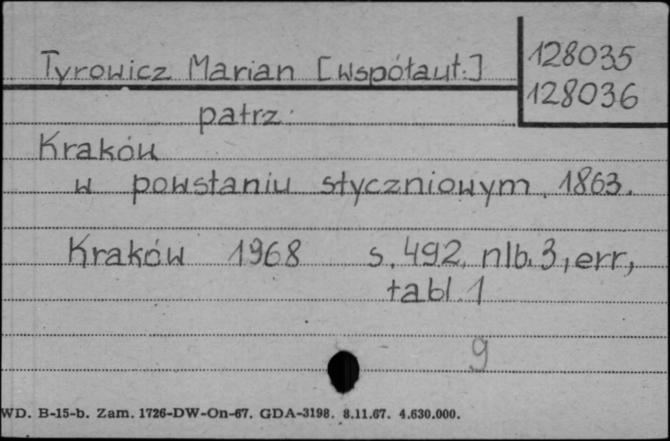 Tyrowicz Marian [współaut.]
128035
128036
patrz:
Kraków
w powstaniu styczniowym 1863.
Kraków 1968 s. 492, nlb. 3, err,
tabl. 1
9
WD. B-15-b. Zam. 1726-DW-On-67. GDA-3198. 8.11.67. 4.630.000.